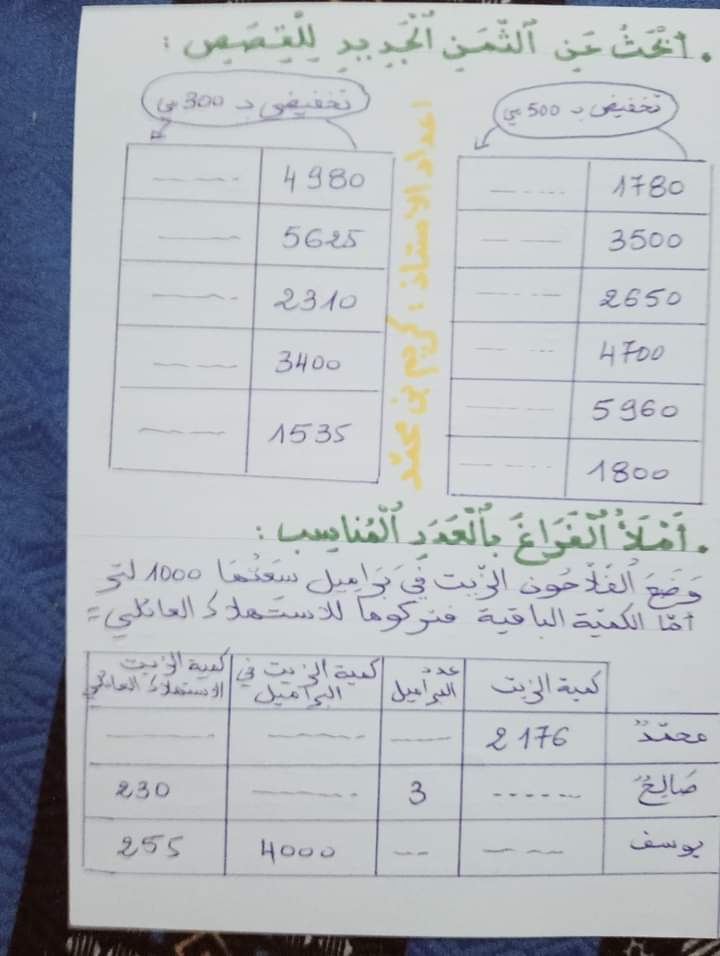 . أَبْحَثُ عَنِ ٱلثَّمَنِ ٱلْجَدِيدِ لِلْقِصَصِ :
تخفيض بـ 500 مي
1780
3500
2650
4700
5960
1800
تخفيض بـ 300 مي
4980
5625
2310
3400
1535
اعداد الاستاذ : كريم بن محمد
. أَمْلَأُ ٱلْفَرَاغَ بِٱلْعَدَدِ ٱلْمُنَاسِبِ :
وَضَعَ ٱلْفَلَّاحُونَ الزّيت فِي بَرَاميل سَعَتُهَا 1000 لتر
أمّا الكمية الباقية فتركوها للاستهلاك العائلي =
كمية الزيت عدد البراميل كمية الزيت في البراميل كمية الزيت الاستهلاك العائلي
محمّد 2176
صَالِحٌ 3 230
يوسف 4000 255